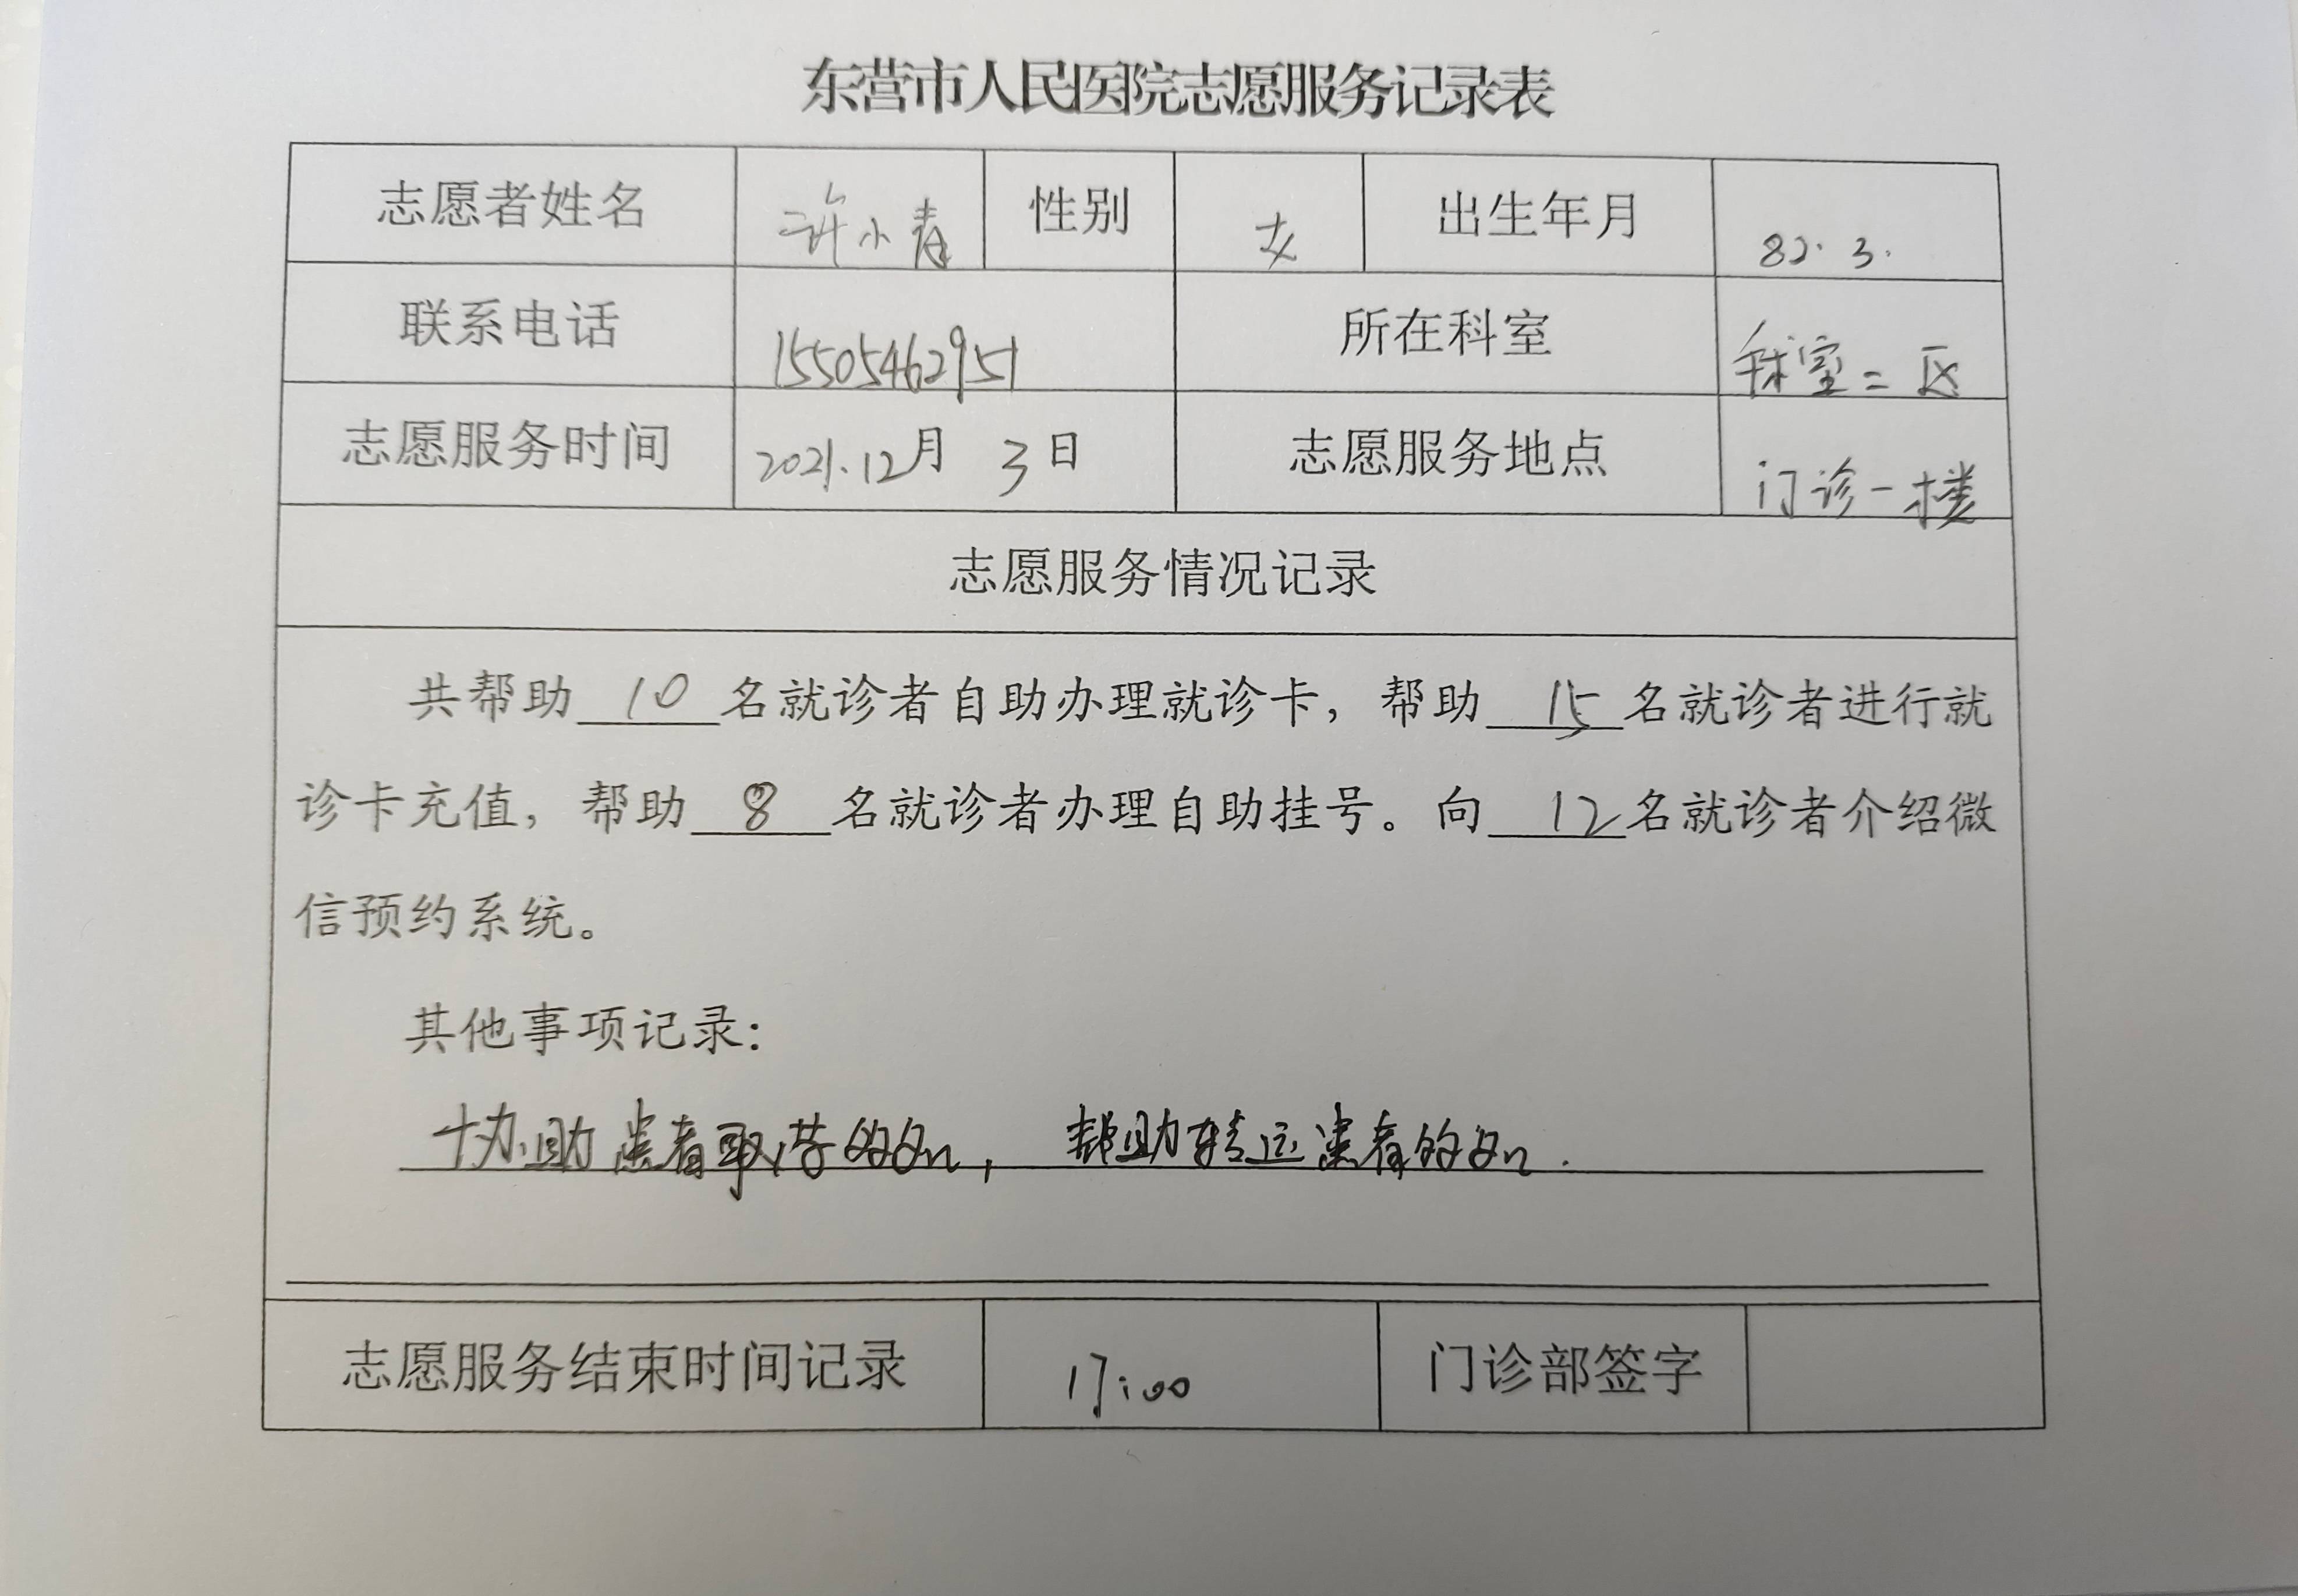 东营市人民医院志愿服务记录表
志愿者姓名 许小春 性别 女 出生年月 82.3.
联系电话 15505462951 所在科室 室二区
志愿服务时间 2021.12月 3日 志愿服务地点 门诊一楼
志愿服务情况记录
共帮助 10 名就诊者自助办理就诊卡，帮助 15 名就诊者进行就
诊卡充值，帮助 8 名就诊者办理自助挂号。向 12 名就诊者介绍微
信预约系统。
其他事项记录：
协助患者取药8次，帮助转运患者8次.
志愿服务结束时间记录 17:00 门诊部签字